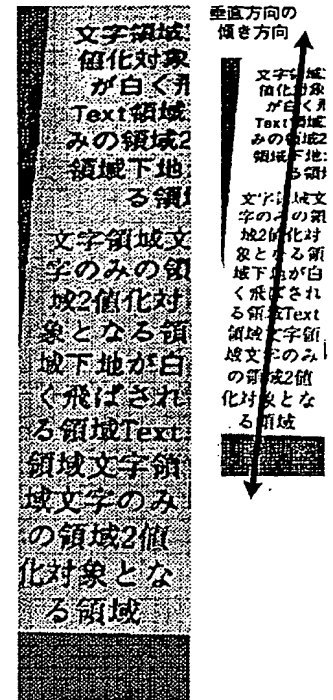 文字領域
値化対象
が白く飛
Text領域
みの領域2
領域下地
る領域
文字領域文
字のみの領
域2値化対
象となる領
域下地が白
く飛ばされ
る領域Text
領域文字領
域文字のみ
の領域2値
化対象とな
る領域
垂直方向の
傾き方向
文字領域
値化対象
が白く飛
Text領域
みの領域2
領域下地
る領域
文字領域文
字のみの領
域2値化対
象となる領
域下地が白
く飛ばされ
る領域Text
領域文字領
域文字のみ
の領域2値
化対象とな
る領域